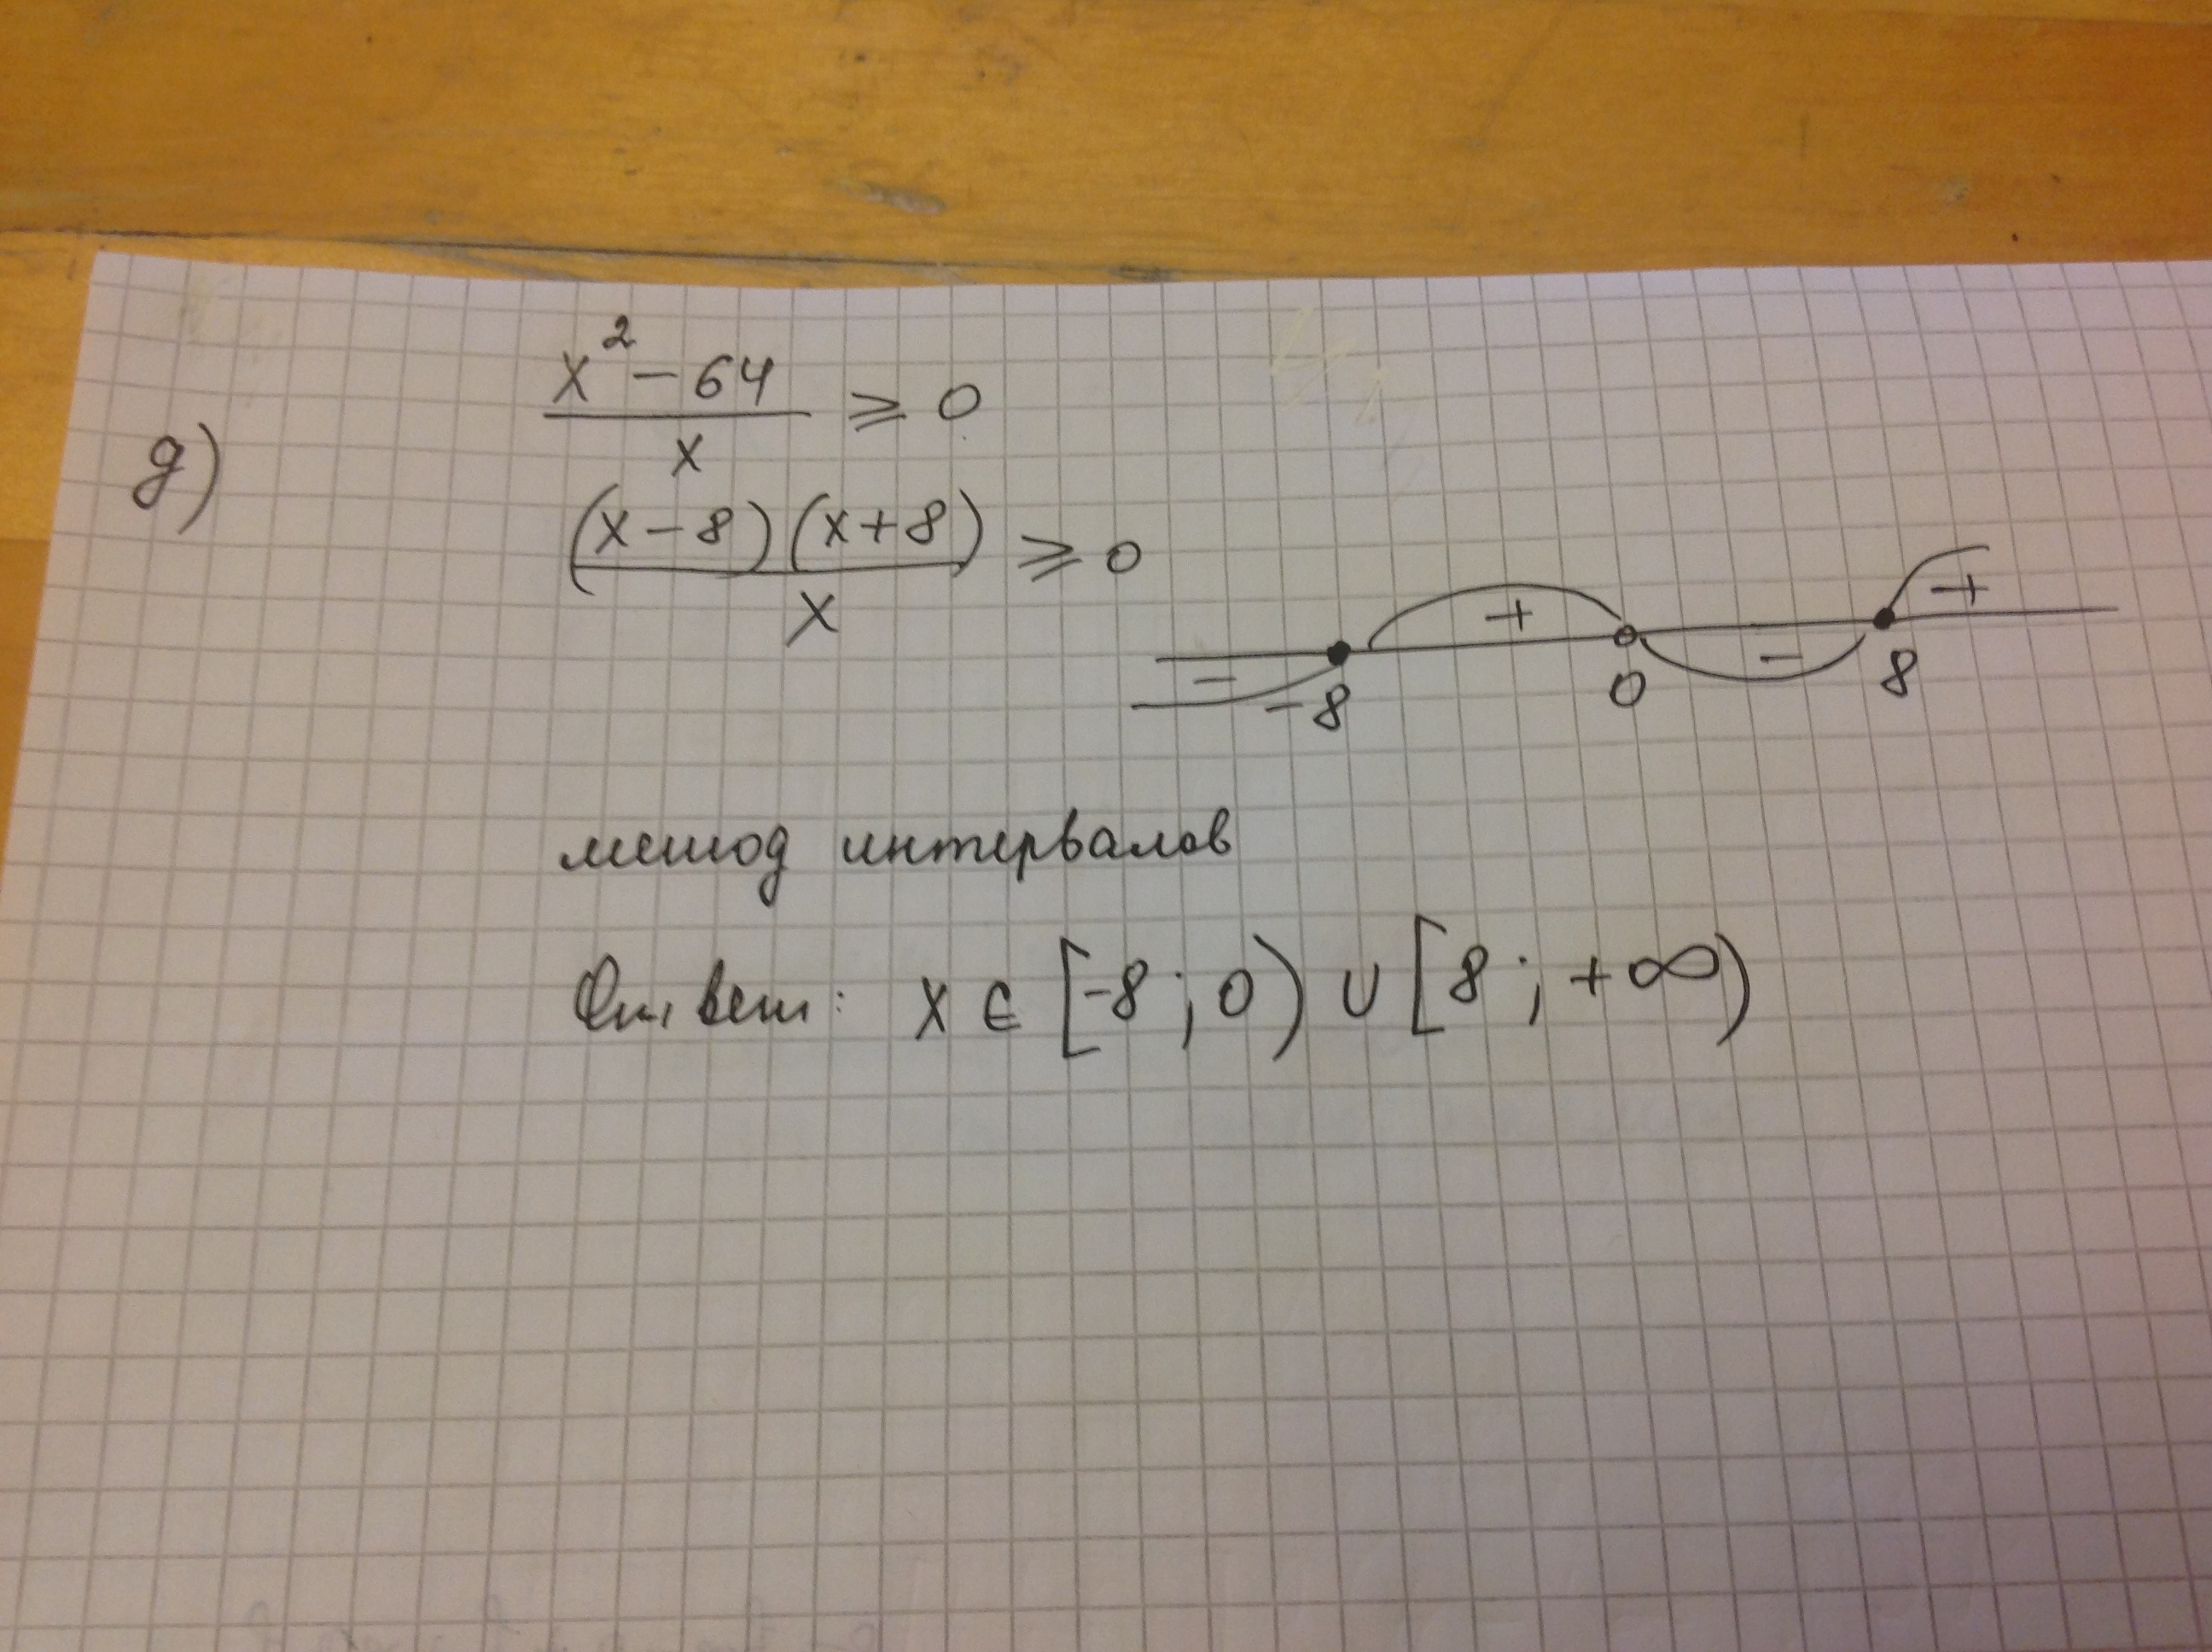 д) x² - 64 / x ⩾ 0
(x - 8)(x + 8) / x ⩾ 0
- + - +
-8 0 8
метод интервалов
Ответ: x ∈ [-8; 0) ∪ [8; +∞)